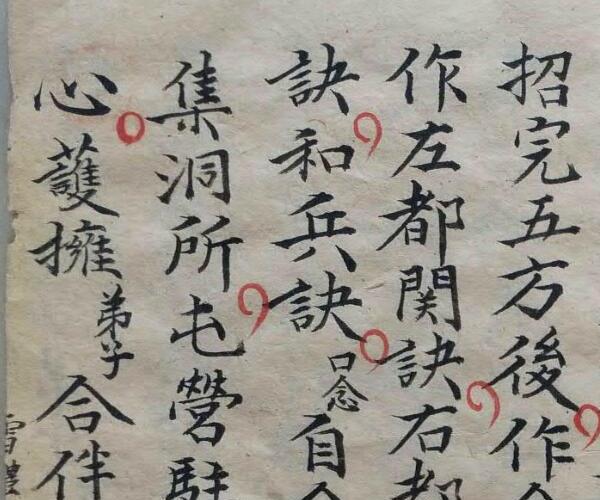 招完五方後作
作左都関訣右都
訣和兵訣口念自
集洞所屯營駐
心護擁弟子合伴